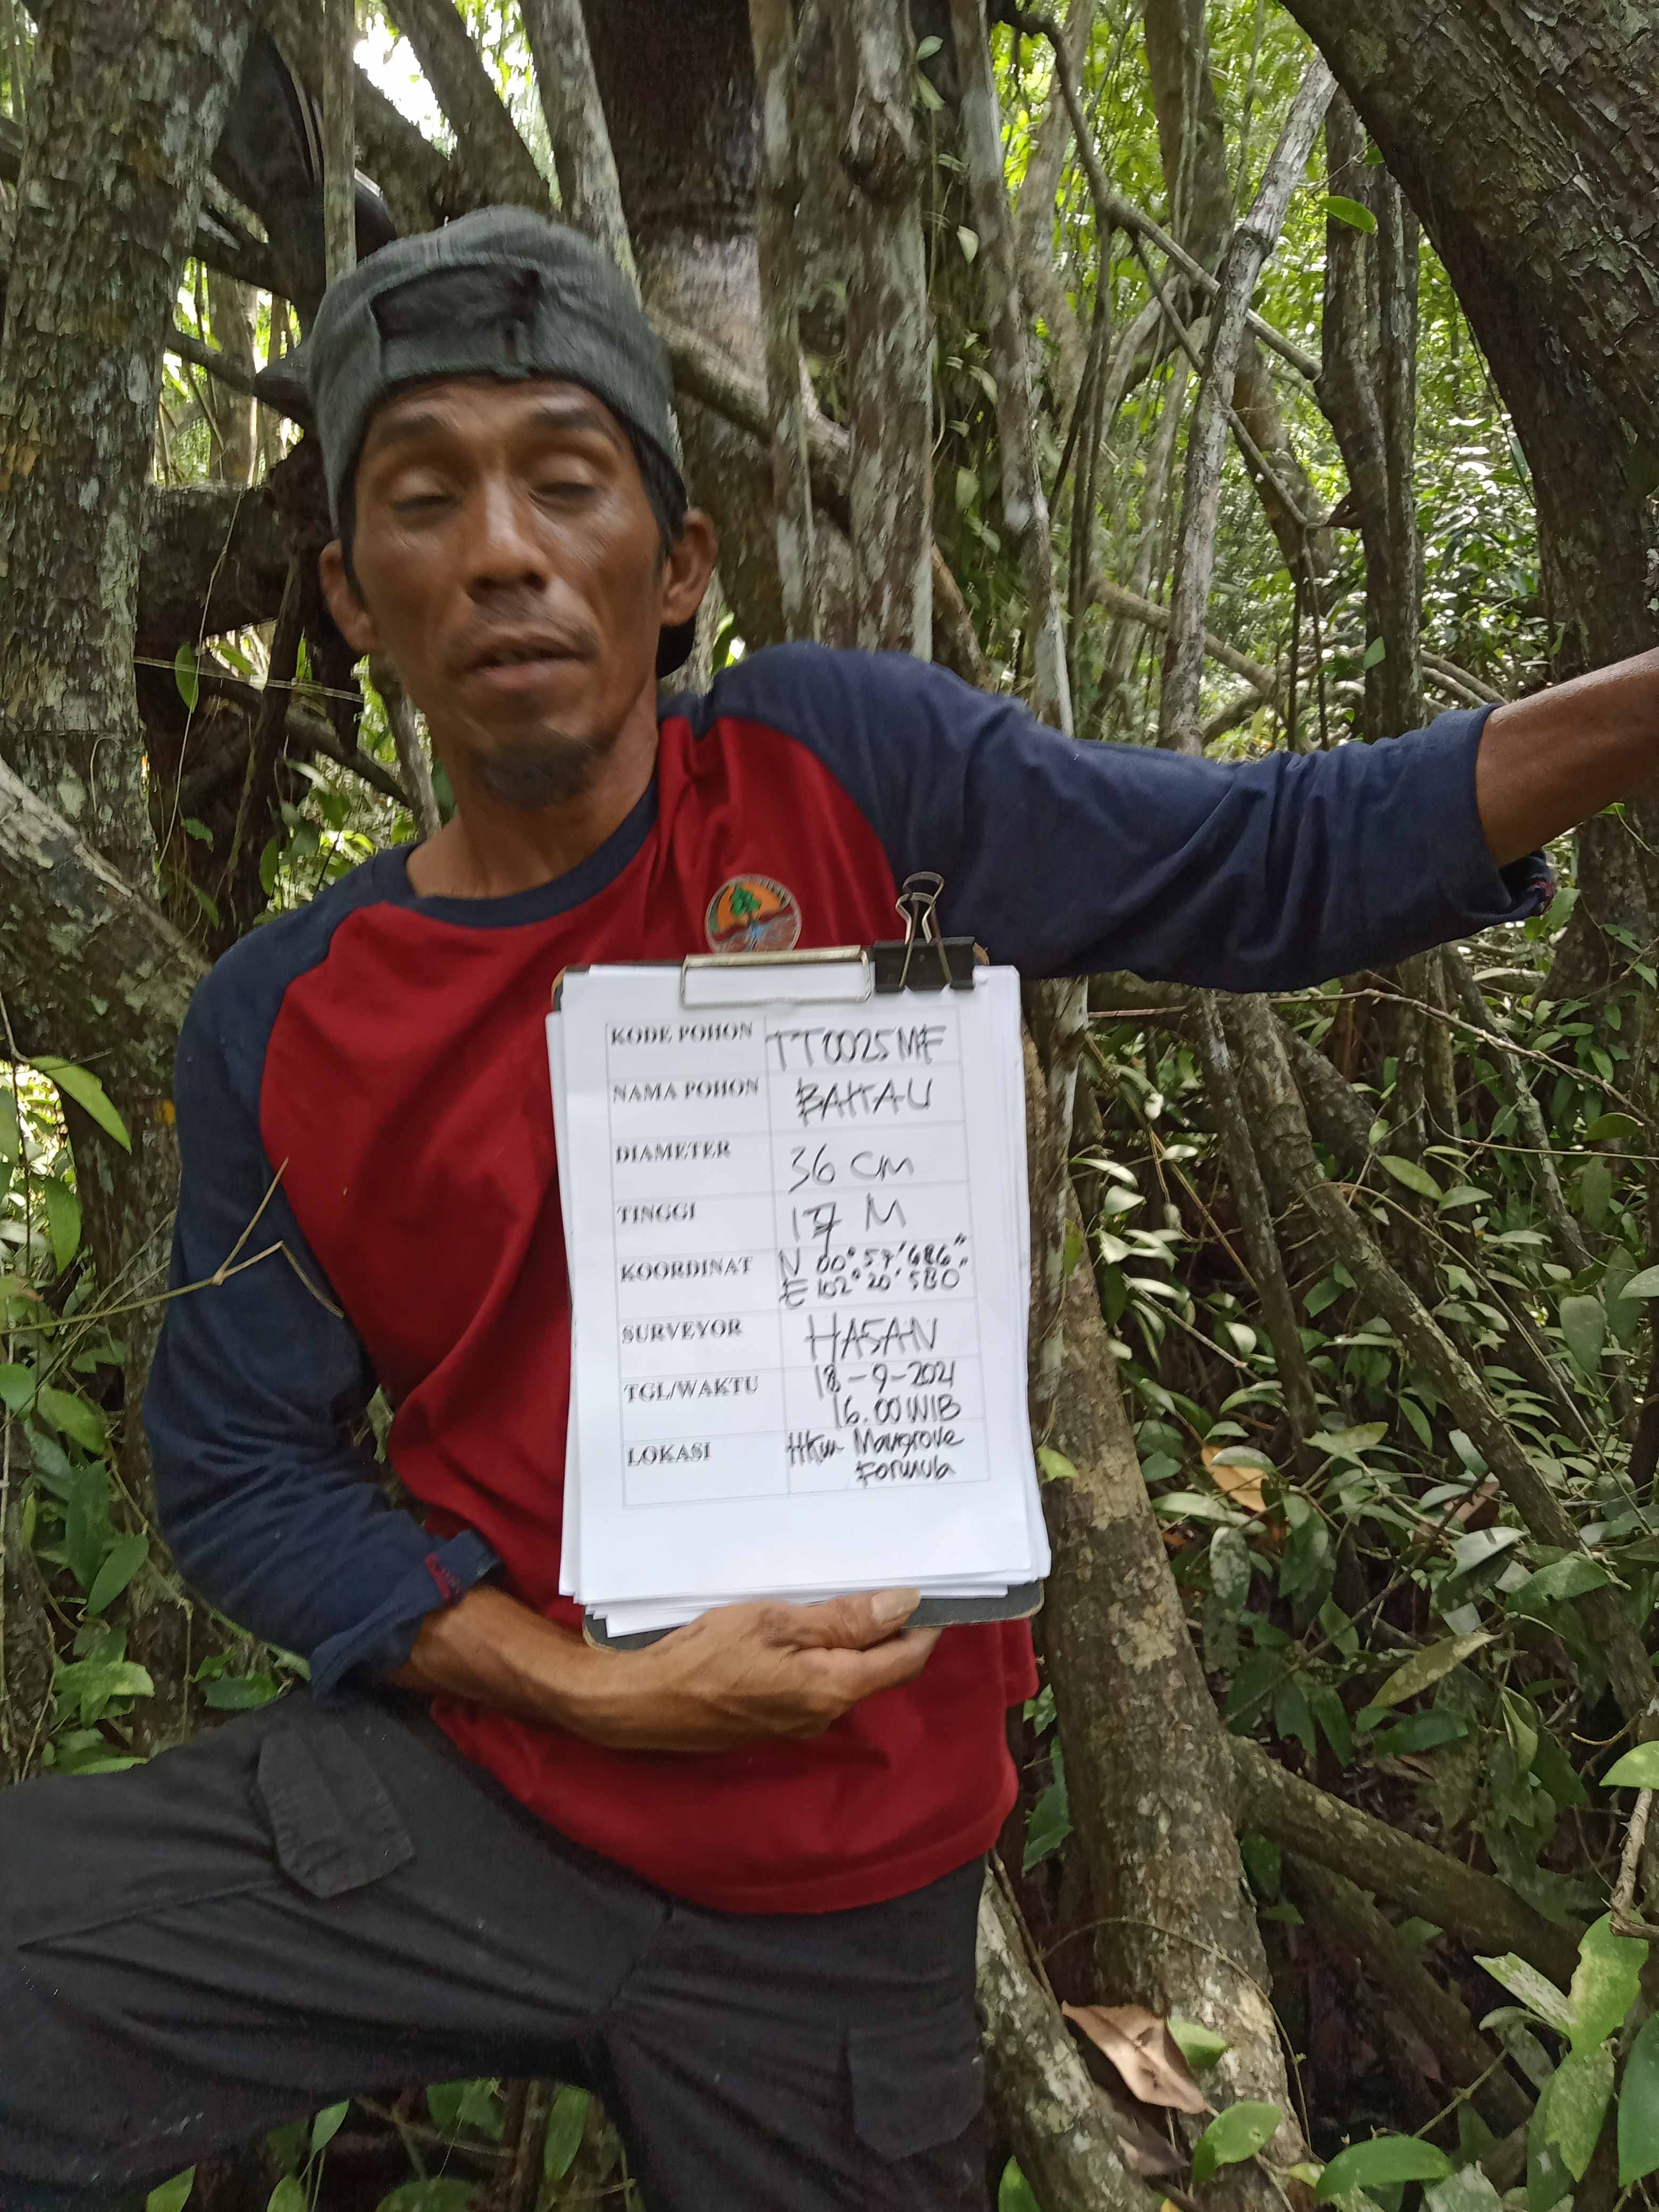 KODE POHON TT0025MF
NAMA POHON BAKAU
DIAMETER 36 CM
TINGGI 17 M
KOORDINAT N 00° 57' 686"
E 102° 20' 580"
SURVEYOR HASAN
TGL/WAKTU 18-9-2021
16.00 WIB
LOKASI HKm Mangrove
Formula